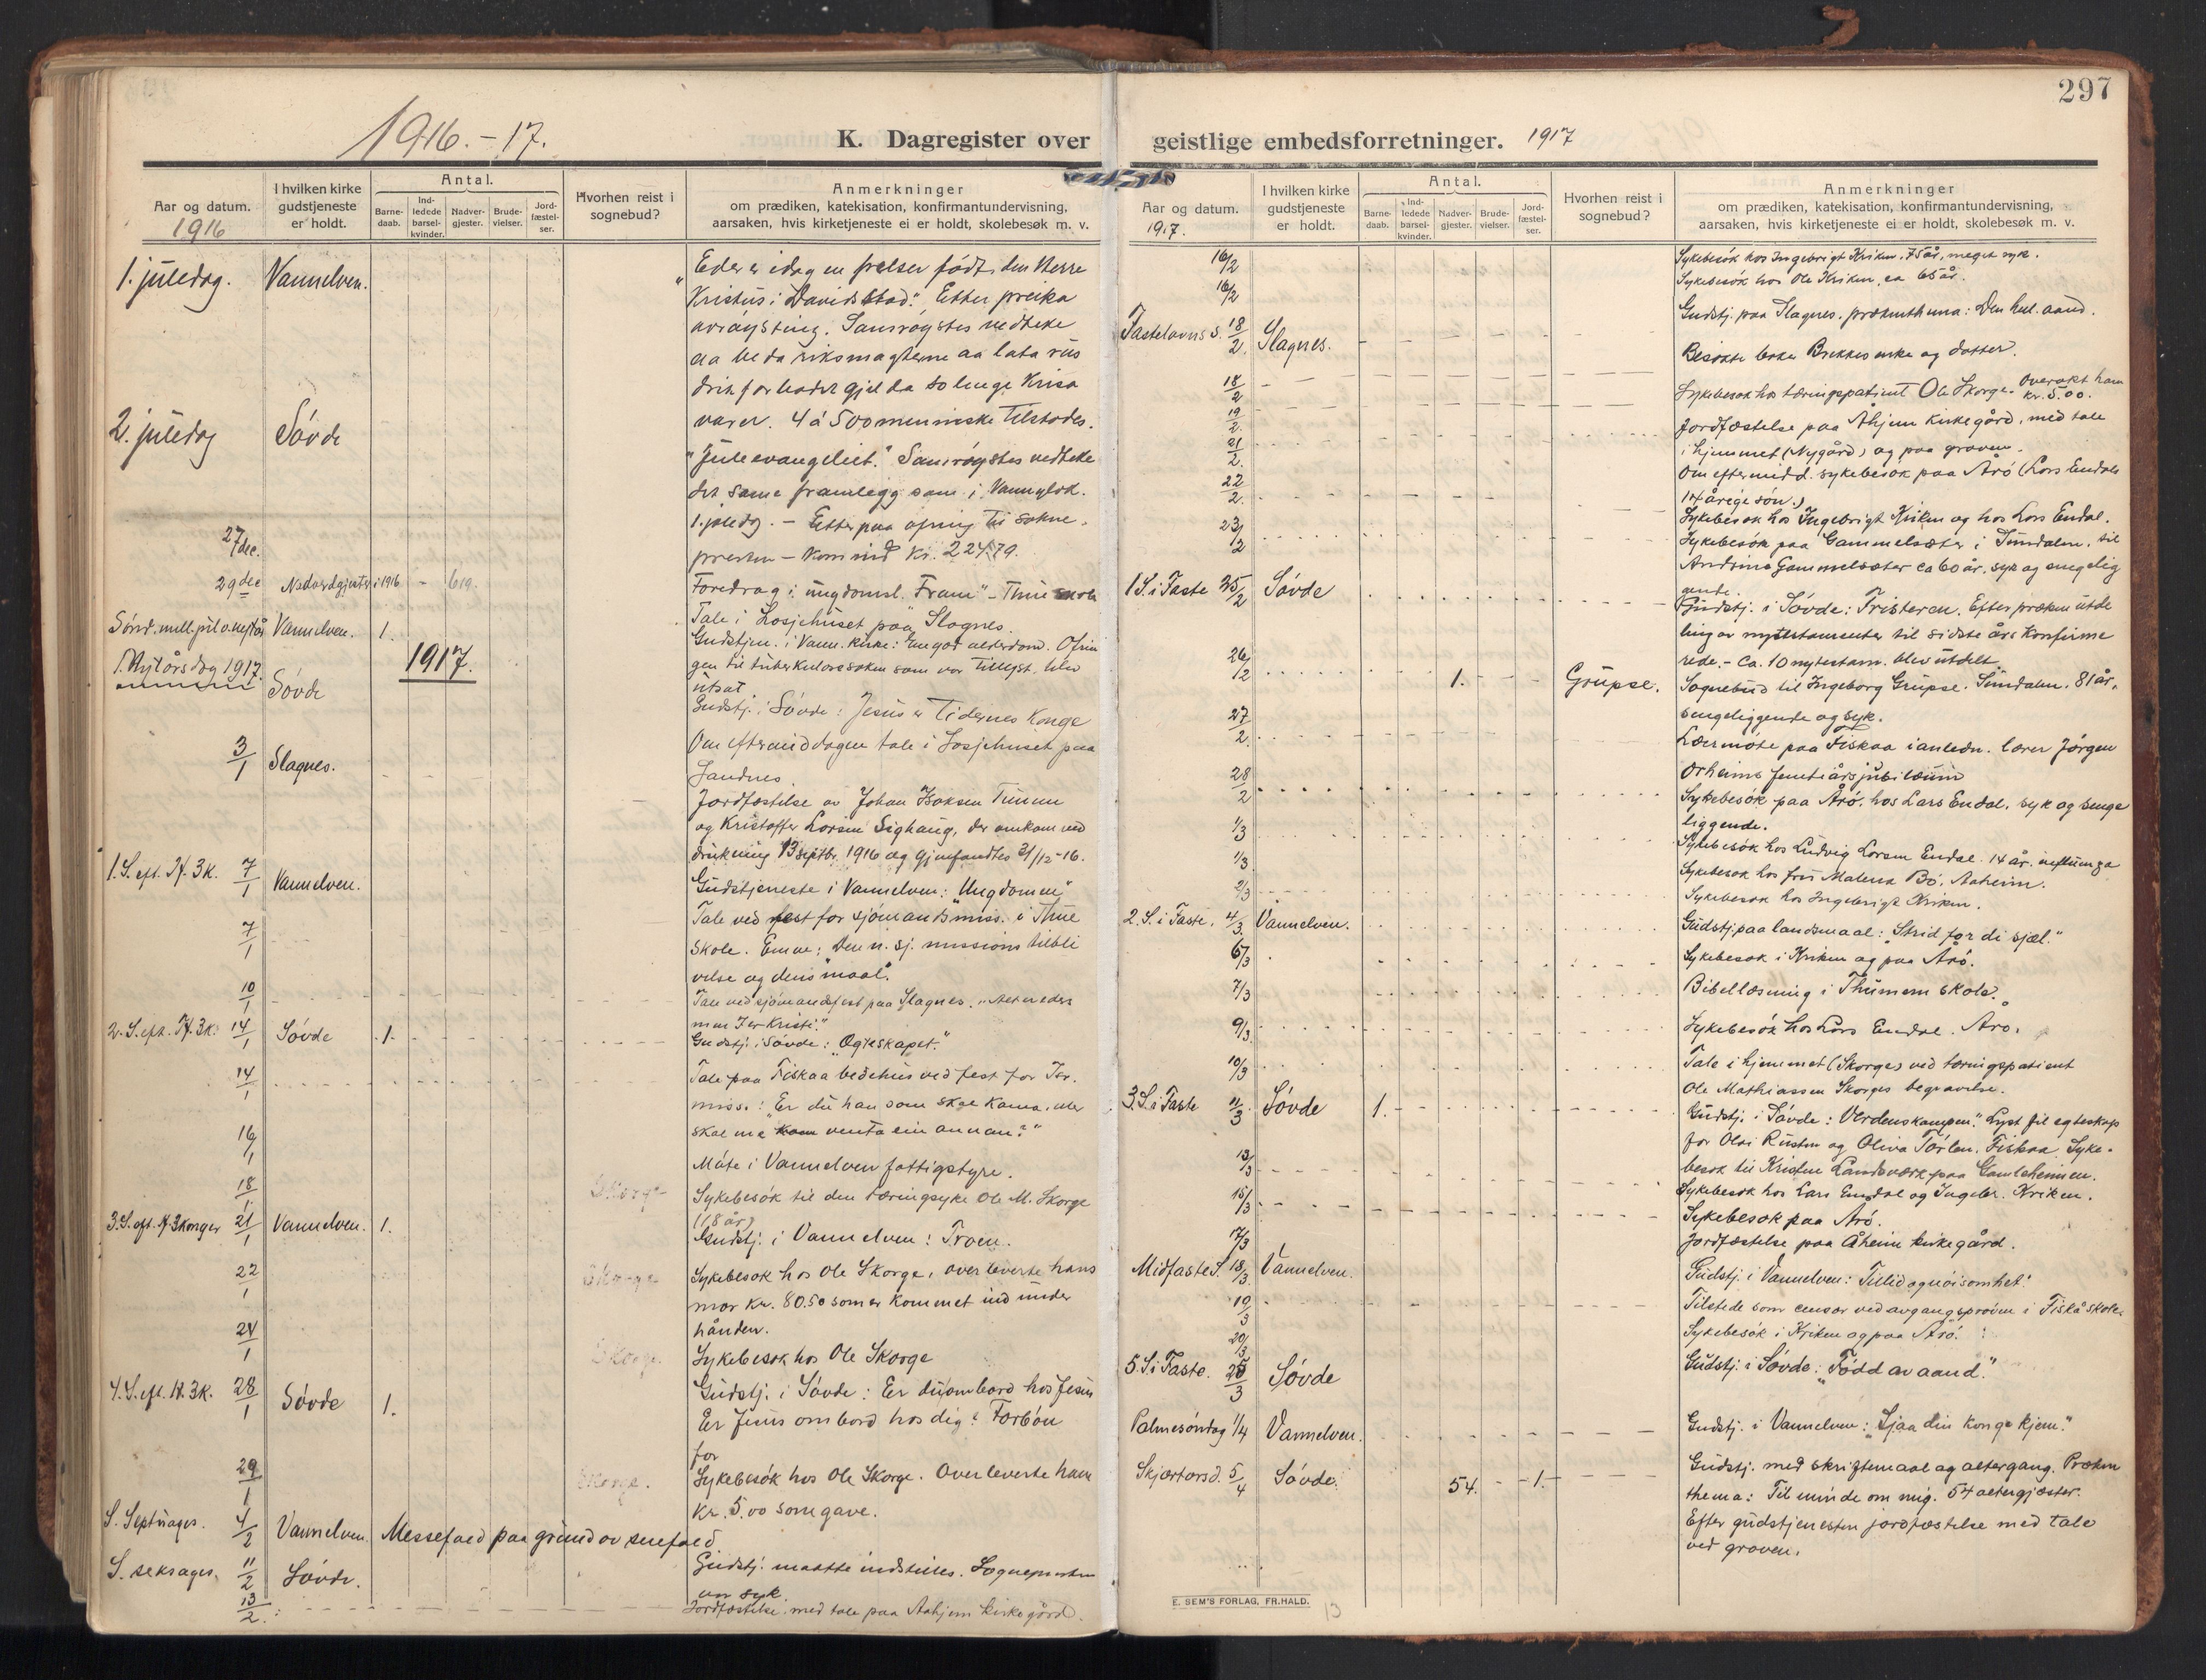 1916.-17.
K. Dagregister over
Aar og datum.
1916
I hvilken kirke gudstjeneste er holdt.
Antal.
Barnedaab.
Indledede barselkvinder.
Nadvergjester.
Brudevielser.
Jordfæstelser.
Hvorhen reist i sognebud?
Anmerkninger
om prædiken, katekisation, konfirmantundervisning,
aarsaken, hvis kirketjeneste ei er holdt, skolebesøk m. v.
1. juledag. Vannelven. "Eder er idag en frelser født, den Herre
Kristus i Davids stad". Etter preika
avrøysting. Samrøystes vedteke
aa be da riksmagterne aa lata rus
drikforbodet gjelda so lenge krisa
varer. 4 à 500 menniske tilstades.
2. juledag Søvde
"Juleevangeliet." Samrøystes vedteke
det same framlegg som i Vannylod.
1. joledag. - Etterpaa ofring til sokne-
presten - kom ind Kr. 224.79.
27/dec.
Foredrag i ungdomsl. "Fram" - Thue skole
29 dec Nadverdgjester i 1916 - 619.
Tale i Losjehuset paa Slagnes.
Sønd. mell. jul o. nyttår Vannelven. 1.
Gudstjen. i Vann. kirke: En god alderdom. Ofrin
gen til tuberkulosesaken som var tillyst, blev
utsat
1917.
Nytårsdag 1917. Søvde
Gudstj. i Søvde: Jesus er Tidernes Konge
Om eftermiddagen tale i Losjehuset paa
Sandnes.
3/1 Slagnes.
Jordfæstelse av Johan Isaksen Tunem
og Kristoffer Larsen Sighaug, der omkom ved
drukning 13 septbr. 1916 og gjenfandtes 31/12-16.
1. S. eft. H. 3 K. 7/1 Vannelven.
Gudstjeneste i Vannelven: "Ungdomen"
7/1 Tale ved fest for sjømandsmiss. i Thue
skole. Emne: Den n. sj. missions tilbli
velse og dens "maal".
10/1 Tale ved sjømandsfest paa Slagnes. "Alt er eders
men I er Kristi."
2. S. eft. H. 3 K. 14/1 Søvde 1.
Gudstj. i Søvde: "Egteskapet."
14/1 Tale paa Fiskaa bedehus ved fest for Isr.
miss.: "Er du han som skal koma, eller
skal me venta ein annan?"
16/1 Møte i Vannelven fattigstyre.
18/1 Skorge Sykebesøk til den tæringsyke Ole M. Skorge
(18 år)
3. S. eft. H. 3 konger 21/1 Vannelven. 1.
Gudstj. i Vannelven: Troen.
22/1 Skorge Sykebesøk hos Ole Skorge, overleverte hans
mor Kr. 80.50 som er kommet ind under
hånden.
24/1 Skorge. Sykebesøk hos Ole Skorge
4. S. eft. H. 3 K. 28/1 Søvde 1.
Gudstj. i Søvde: Er du ombord hos Jesus
Er Jesus ombord hos dig? Forbøn
for
29/1 Skorge. Sykebesøk hos Ole Skorge. Overleverte ham
Kr. 5.00 som gave.
S. Septuages. 4/2 Vannelven. Messefald paa grund av snefald.
S. seksages. 11/2 Søvde.
Gudstj. maatte indstilles. Sognepresten
var syk.
13/2. Jordfæstelse, med tale paa Aahjem kirkegård.
297
geistlige embedsforretninger. 1917
Aar og datum.
1917.
I hvilken kirke gudstjeneste er holdt.
Antal.
Barnedaab.
Indledede barselkvinder.
Nadvergjester.
Brudevielser.
Jordfæstelser.
Hvorhen reist i sognebud?
Anmerkninger
om prædiken, katekisation, konfirmantundervisning,
aarsaken, hvis kirketjeneste ei er holdt, skolebesøk m. v.
16/2 Sykebesøk hos Ingebrigt Kriken, 75 år, meget syk.
16/2 Sykebesøk hos Ole Kriken, ca 65 år.
Fastelavns S. 18/2. Slagnes.
Gudstj. paa Slagnes. prækenthema: Den hel. aand.
Besøkte Brekkes enke og datter.
18/2 Sykebesøk hos tæringspatient Ole Skorge. Overrakt ham
kr. 5.00.
19/2. Jordfæstelse paa Åhjem kirkegård, med tale
i hjemmet (Nygård) og paa graven.
21/2. Om eftermidd. sykebesøk paa Årø (Lars Endals
14 årige søn.)
22/2. Sykebesøk hos Ingebrigt Kriken og hos Lars Endal.
23/2 Sykebesøk paa Gammelsæter i Sundalen, til
Gammelsæter ca 60 år, syk og sengelig
gende.
1 S. i Faste 25/2 Søvde
Gudstj. i Søvde: Fristeren. Efter præken utde
ling av nytestamenter til sidste års konfirme
rede. - Ca. 10 nytestam. blev utdelt.
26/2 1. Grupse. Sognebud til Ingeborg Grupse. Sundalen. 81 år,
sengeliggende og syk.
27/2. Lærermøte paa Fiskaa i anledn. lærer Jørgen
Orheims femtiårsjubilæum
28/2 Sykebesøk paa Årø, hos Lars Endal, syk og senge
liggende.
1/3 Sykebesøk hos Ludvig Larsen Endal. 14 år. influenza
1/3. Sykebesøk hos fru Malena Bø, Aaheim.
2/3 Sykebesøk hos Ingebrigt Kriken.
2. S. i Faste. 4/3. Vannelven.
Gudstj. paa landsmaal: "Strid for di sjæl."
6/3 Sykebesøk i Kriken og paa Årø.
7/3 Bibellæsning i Thunem skole.
9/3 Sykebesøk hos Lars Endal. Årø.
10/3 Tale i hjemmet (Skorge) ved tæringspatient
Ole Mathiassen Skorges begravelse.
3. S. i Faste 11/3. Søvde 1.
Gudstj. i Søvde: "Verdenskampen". Lyst til egteskap
for Olai Rusten og Oliva Tørlen. Fiskaa. Syke-
besøk til Kristen Landsværk paa Gamleheimen.
13/3 Sykebesøk hos Lars Endal og Ingebr. Kriken.
15/3 Sykebesøk paa Årø.
17/3 Jordfæstelse paa Åheim kirkegård.
Midfaste S. 18/3. Vannelven.
Gudstj. i Vannelven: Tillid og nøisomhet.
19/3 Tilstede som censor ved avgangsprøven i Fiskå skole.
20/3 Sykebesøk i Kriken og paa Årø.
5. S. i Faste. 25/3 Søvde
Gudstj. i Søvde: "Fødd av aand."
Palmesøndag 1/4 Vannelven.
Gudstj. i Vannelven: "Sjaa din konge kjem."
Skjærtorsd. 5/4 Søvde. 54. 1.
Gudstj. med skriftemaal og altergang. Præken
thema: Til minde om mig. 54 altergjæster.
Efter gudstjenesten jordfæstelse med tale
ved graven.
E. SEM'S FORLAG, FR.HALD.
13